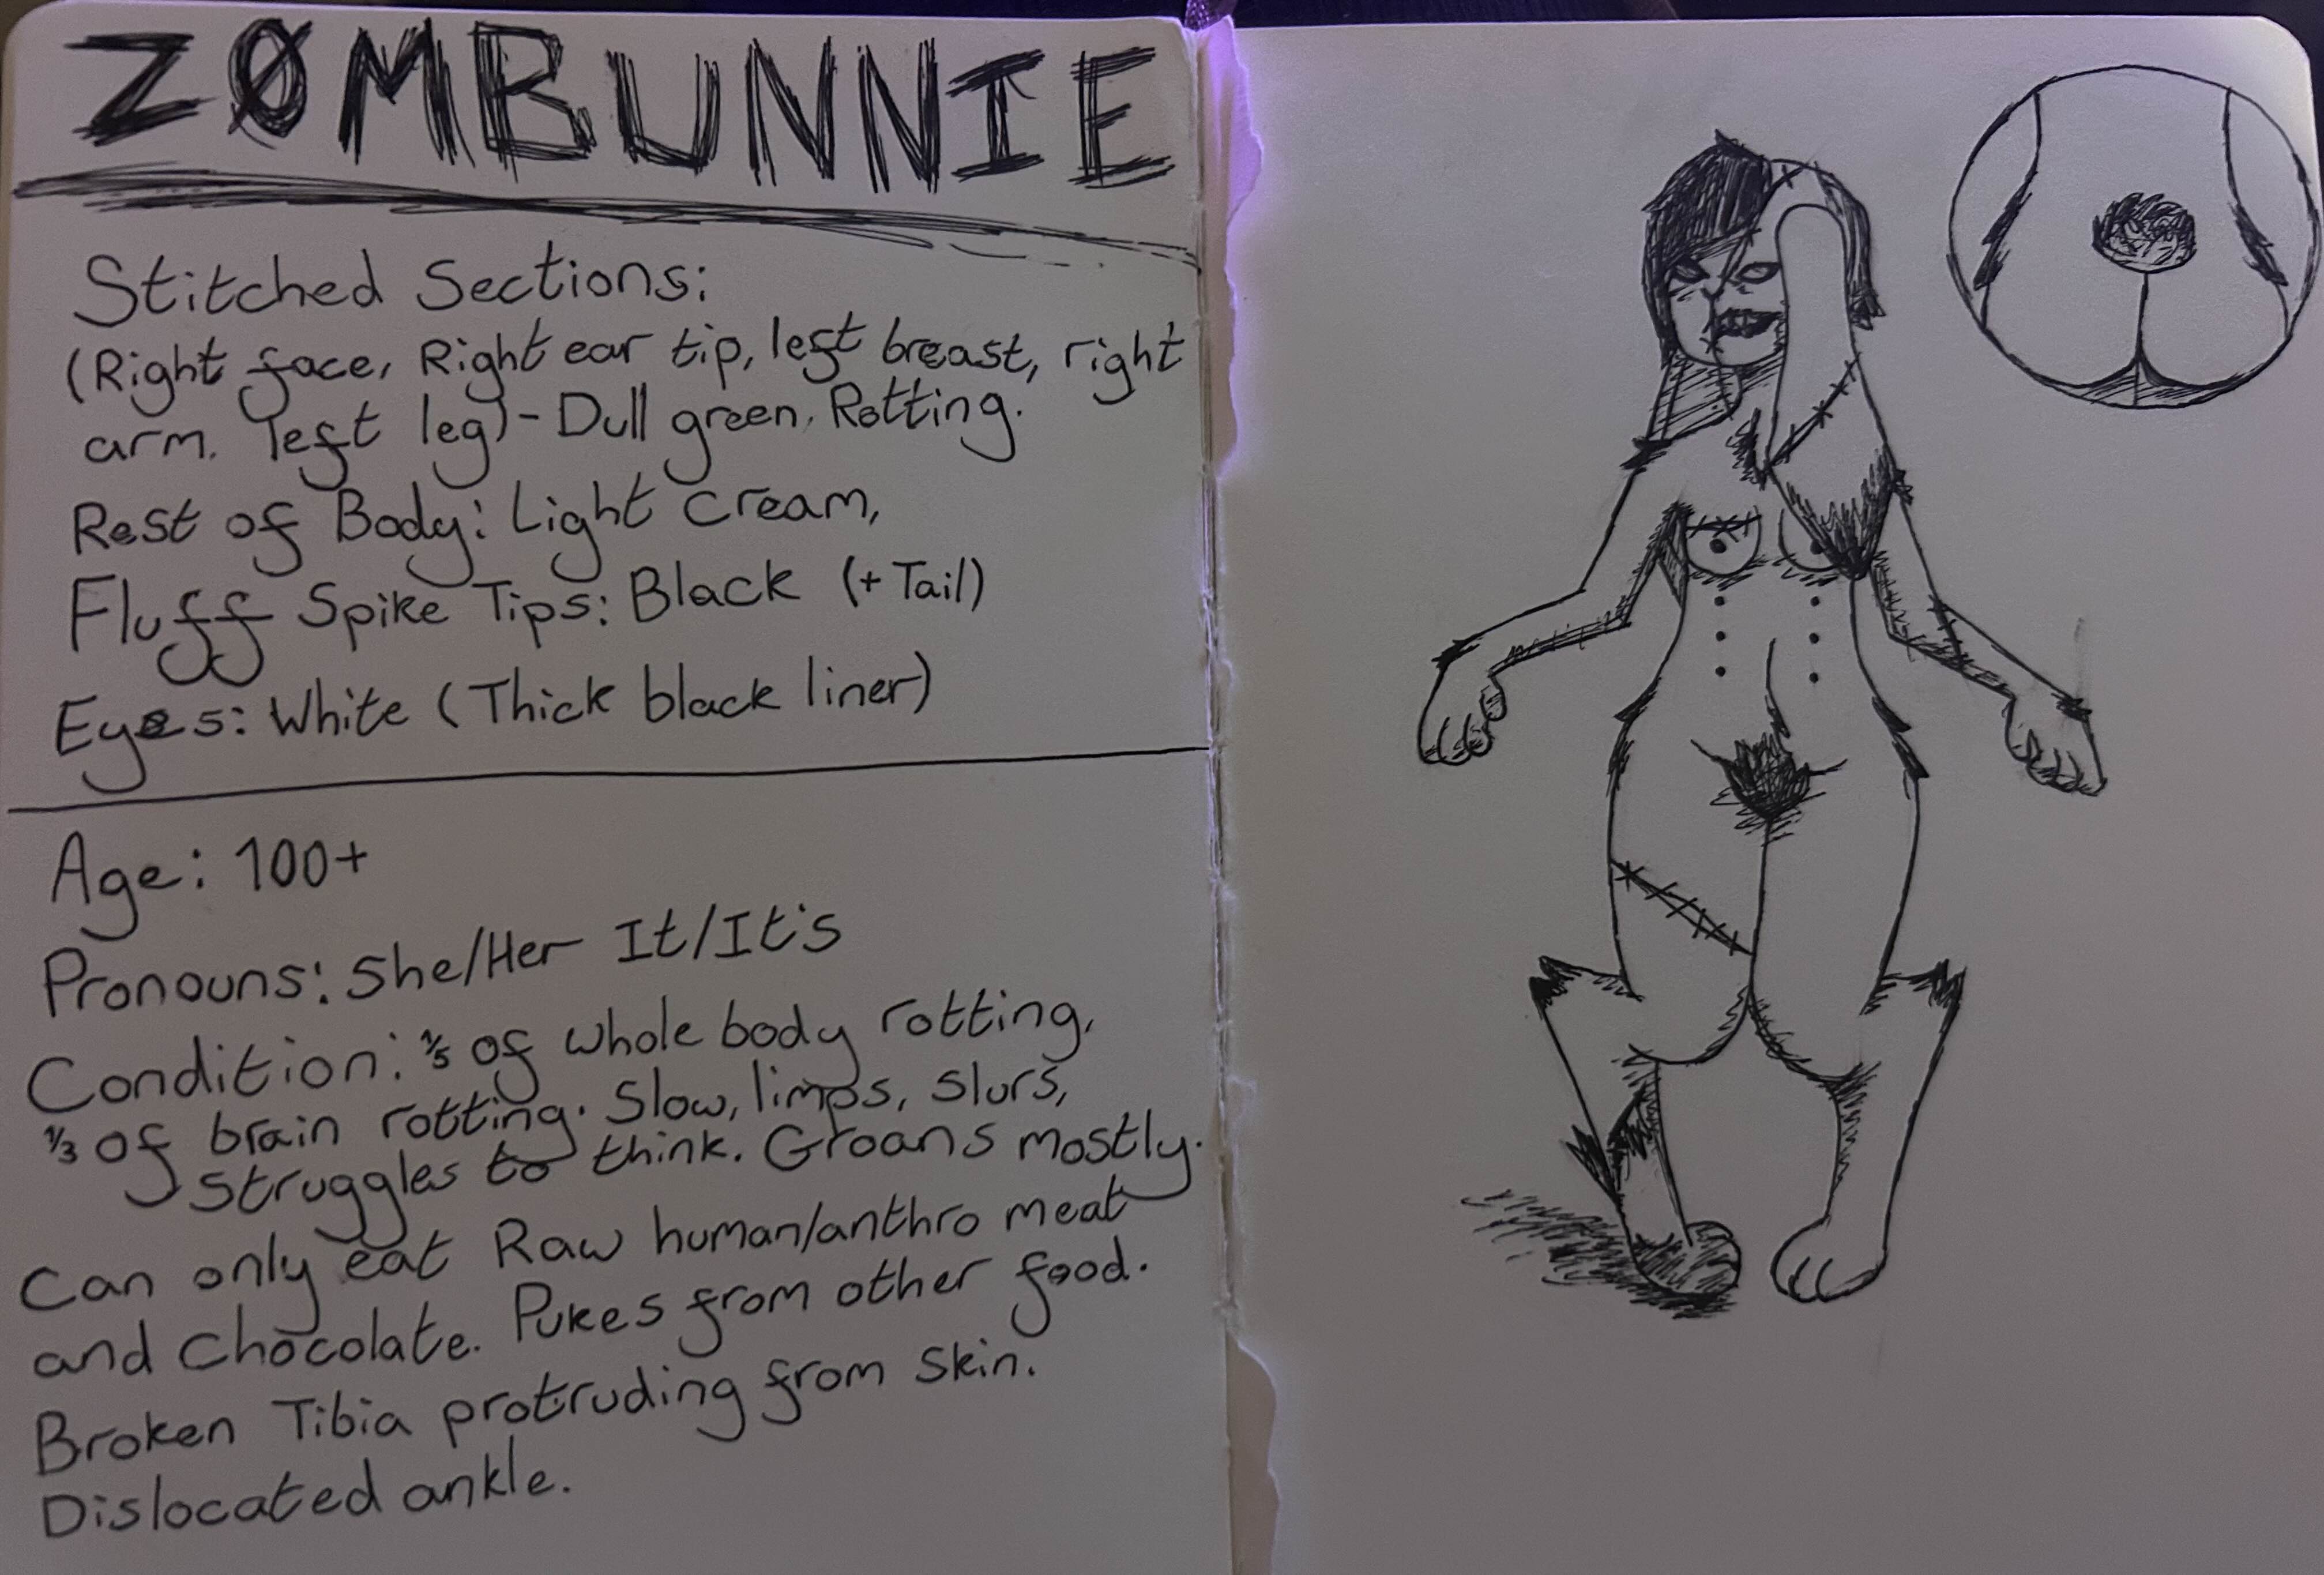 ZØMBUNNIE
Stitched Sections:
(Right face, Right ear tip, left breast, right
arm, left leg) - Dull green, Rotting.
Rest of Body: Light cream,
Fluff Spike Tips: Black (+ Tail)
Eyes: White (Thick black liner)
Age: 100+
Pronouns: She/Her It/It's
Condition: ⅕ of whole body rotting,
⅓ of brain rotting. Slow, limps, slurs,
struggles to think. Groans mostly.
Can only eat Raw human/anthro meat
and chocolate. Pukes from other food.
Broken Tibia protruding from skin.
Dislocated ankle.